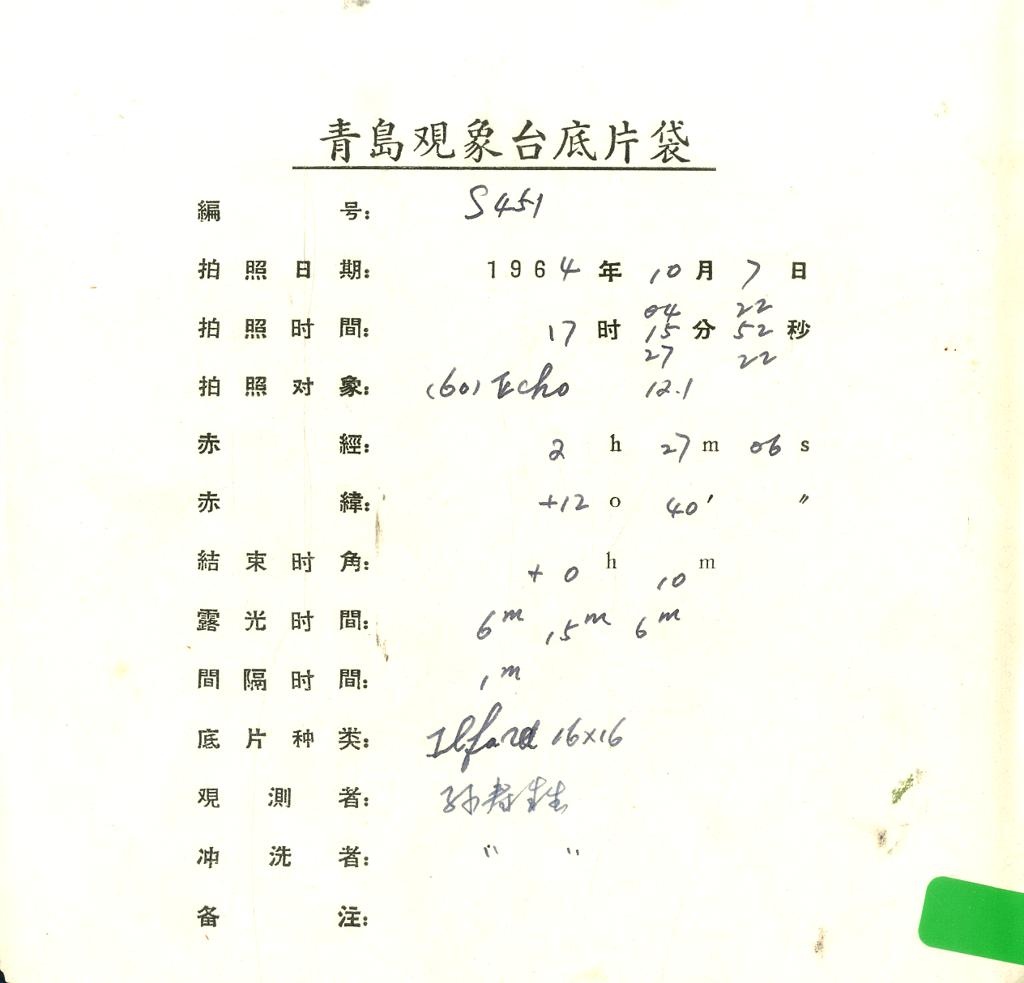 青島观象台底片袋
編 号: S451
拍照日期: 1964年10月7日
04 22
拍照时間: 17时15分52秒
27 22
拍照对象: (60) Echo 12.1
赤 經: 2 h 27 m 06 s
赤 緯: +12 o 40′ ″
結束时角: +0 h 10 m
露光时間: 6m 15m 6m
間隔时間: 1m
底片种类: Ilford 16×16
观測者: 孙寿
冲洗者: 〃 〃
备 注: